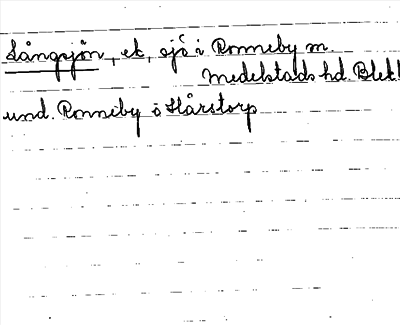 Långsjön, ek, sjö i Ronneby m.
Medelstads hd. Blek!
und. Ronneby o Hårstorp